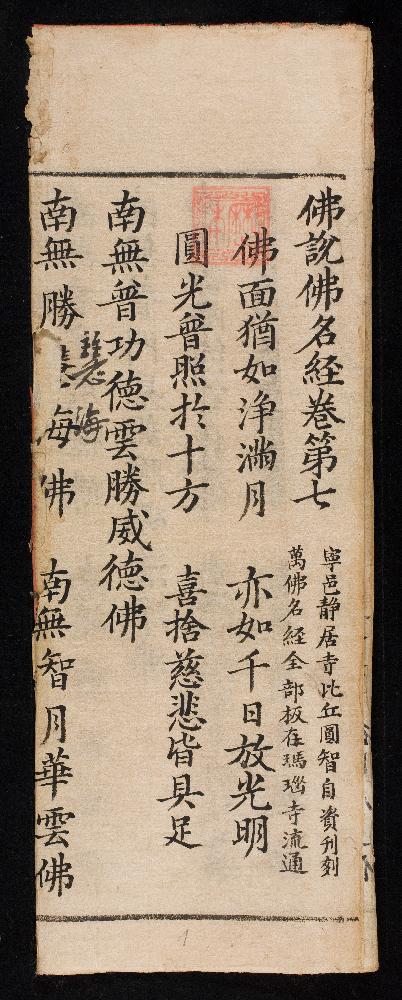 佛說佛名經卷第七
寧邑静居寺比丘圓智自資刋刻
萬佛名經全部板存瑪瑙寺流通
佛面猶如淨滿月 亦如千日放光明
圓光普照於十方 喜捨慈悲皆具足
南無普功德雲勝威德佛
慧海
南無勝慧海佛 南無智月華雲佛
1